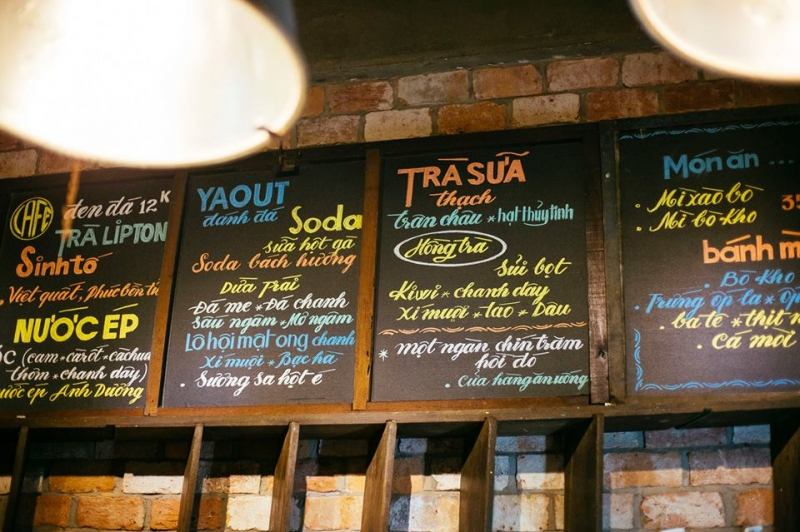 CAFE đen đá 12K
TRÀ LIPTON
Sinh tố
Việt quất, Phúc bồn tử
NƯỚC ÉP
(cam * carốt * cachua
thơm * chanh dây)
ước ép Ánh Dương
YAOUT
đánh đá
Soda
sữa hột gà
Soda bách hương
Dừa Trái
Đá me * Đá chanh
Sâu ngâm * Mơ ngâm
Lô hội mật ong chanh
Xí muội * Bạc hà
. Sương sa hột é
TRÀ SỮA
thạch
trân châu * hạt thủy tinh
Hồng trà
Sủi bọt
Kiwi * chanh dây
Xí muội * Táo * Dâu
* một ngàn chín trăm
hồi đó
. Của hàng ăn uống
Món ăn ...
. Mì xào bò
. Mì bò-kho
35
bánh m
. Bò-Kho
. Trứng ốp la * ốp
. ba tê * thịt n
. Cá mòi